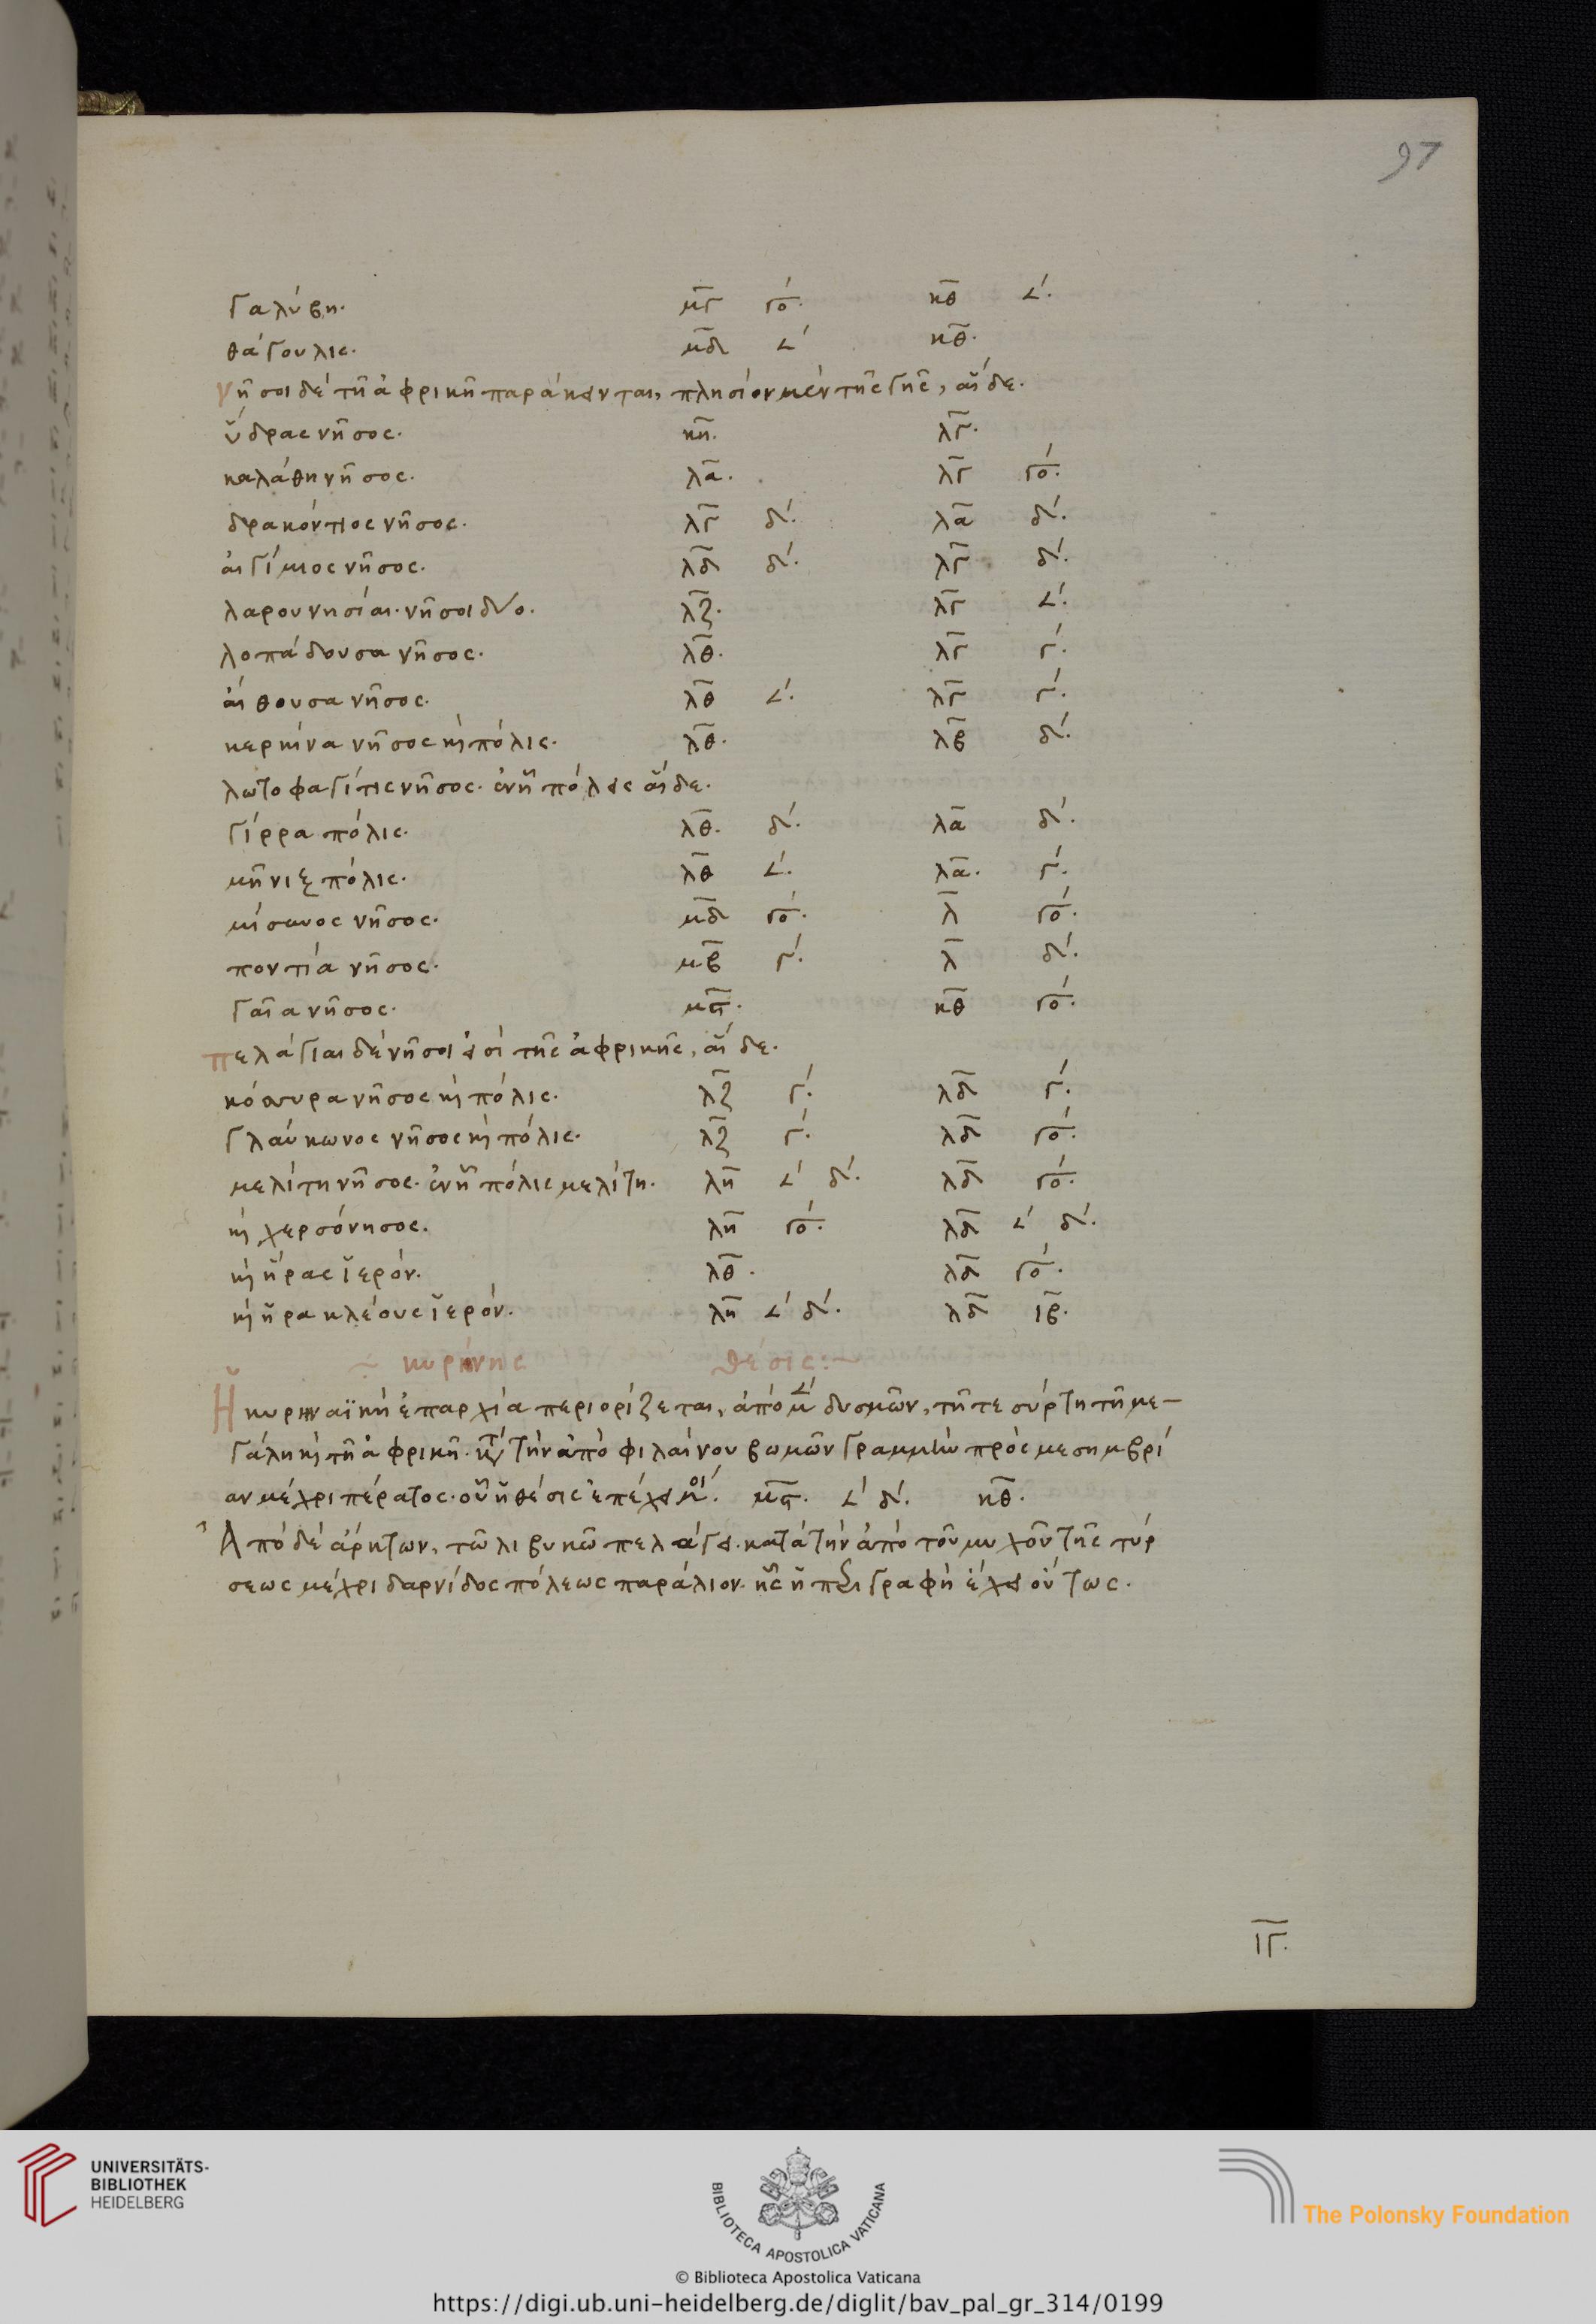 97
Γαλύβη. μγ γο. κθ 𐅵.
θάγουλις. μδ 𐅵 κθ.
νῆσοι δὲ τῆ ἀφρικῆ παράκεινται, πλησίον μὲν τῆς γῆς, αἵδε.
ὕδρας νῆσος. κη. λγ.
καλάθη νῆσος. λα. λγ γο.
δρακόντιος νῆσος. λγ δ. λα δ.
αἰγίμιος νῆσος. λδ δ. λγ δ.
λαρουνησίαι. νῆσοι δύο. λζ. λγ 𐅵.
λοπάδουσα νῆσος. λθ. λγ γ.
αἴθουσα νῆσος. λθ 𐅵. λγ γ.
κερκίνα νῆσος κὶ πόλις. λθ. λβ δ.
λωτοφαγίτις νῆσος. ἐν ἧ πόλεις αἵδε.
Γίρρα πόλις. λθ. δ. λα δ.
μῆνιξ πόλις. λθ 𐅵. λα. γ.
μίσωνος νῆσος. μδ γο. λ γο.
ποντία νῆσος. μβ γ. λ δ.
Γαῖα νῆσος. μϛ. κθ γο.
πελάγιαι δὲ νῆσοι εἰσὶ τῆς ἀφρικῆς, αἵδε.
κόσσυρα νῆσος κὶ πόλις. λζ γ. λδ γ.
Γλαύκωνος νῆσος κὶ πόλις. λζ γ. λδ γο.
μελίτη νῆσος. ἐν ἧ πόλις μελίτη. λη 𐅵 δ. λδ γο.
κὶ χερσόνησος. λη γο. λδ 𐅵 δ.
κὶ ἥρας ἱερόν. λθ. λδ γο.
κὶ ἡρακλέους ἱερόν. λη 𐅵 δ. λδ ιβ.
κυρήνης θέσις:~
Ἡ κυρηναϊκὴ ἐπαρχία περιορίζεται, ἀπὸ μὲν δυσμῶν, τῆ τε σύρτη τῆ με-
γάλη κὶ τῆ ἀφρικῆ. κατὰ τὴν ἀπὸ φιλαίνου βωμῶν γραμμὴν πρὸς μεσημβρί
αν μέχρι πέρατος. οὗ ἡ θέσις ἐπέχει μοί. μϛ. 𐅵 δ. κθ.
Ἀπὸ δὲ ἄρκτων, τῶ λιβυκῶ πελάγει. κατὰ τὴν ἀπὸ τοῦ μυχοῦ τῆς τύρ
σεως μέχρι δαρνίδος πόλεως παράλιον. ἧς ἡ περιγραφὴ ἔχει οὕτως.
ιγ.
UNIVERSITÄTS-
BIBLIOTHEK
HEIDELBERG
BIBLIOTECA APOSTOLICA VATICANA
The Polonsky Foundation
© Biblioteca Apostolica Vaticana
https://digi.ub.uni-heidelberg.de/diglit/bav_pal_gr_314/0199